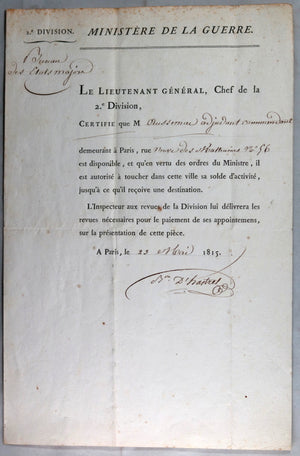 2.e DIVISION. MINISTÈRE DE LA GUERRE.
Bureau
des Etats majors
LE LIEUTENANT GÉNÉRAL, Chef de la
2.e Division,
CERTIFIE que M adjudant commandant
demeurant à Paris, rue Neuve des Mathurins N.o 56
est disponible, et qu'en vertu des ordres du Ministre, il
est autorisé à toucher dans cette ville sa solde d'activité,
jusqu'à ce qu'il reçoive une destination.
L'Inspecteur aux revues de la Division lui délivrera les
revues nécessaires pour le paiement de ses appointemens,
sur la présentation de cette pièce.
A Paris, le 23 1815.
B.on D'hastrel